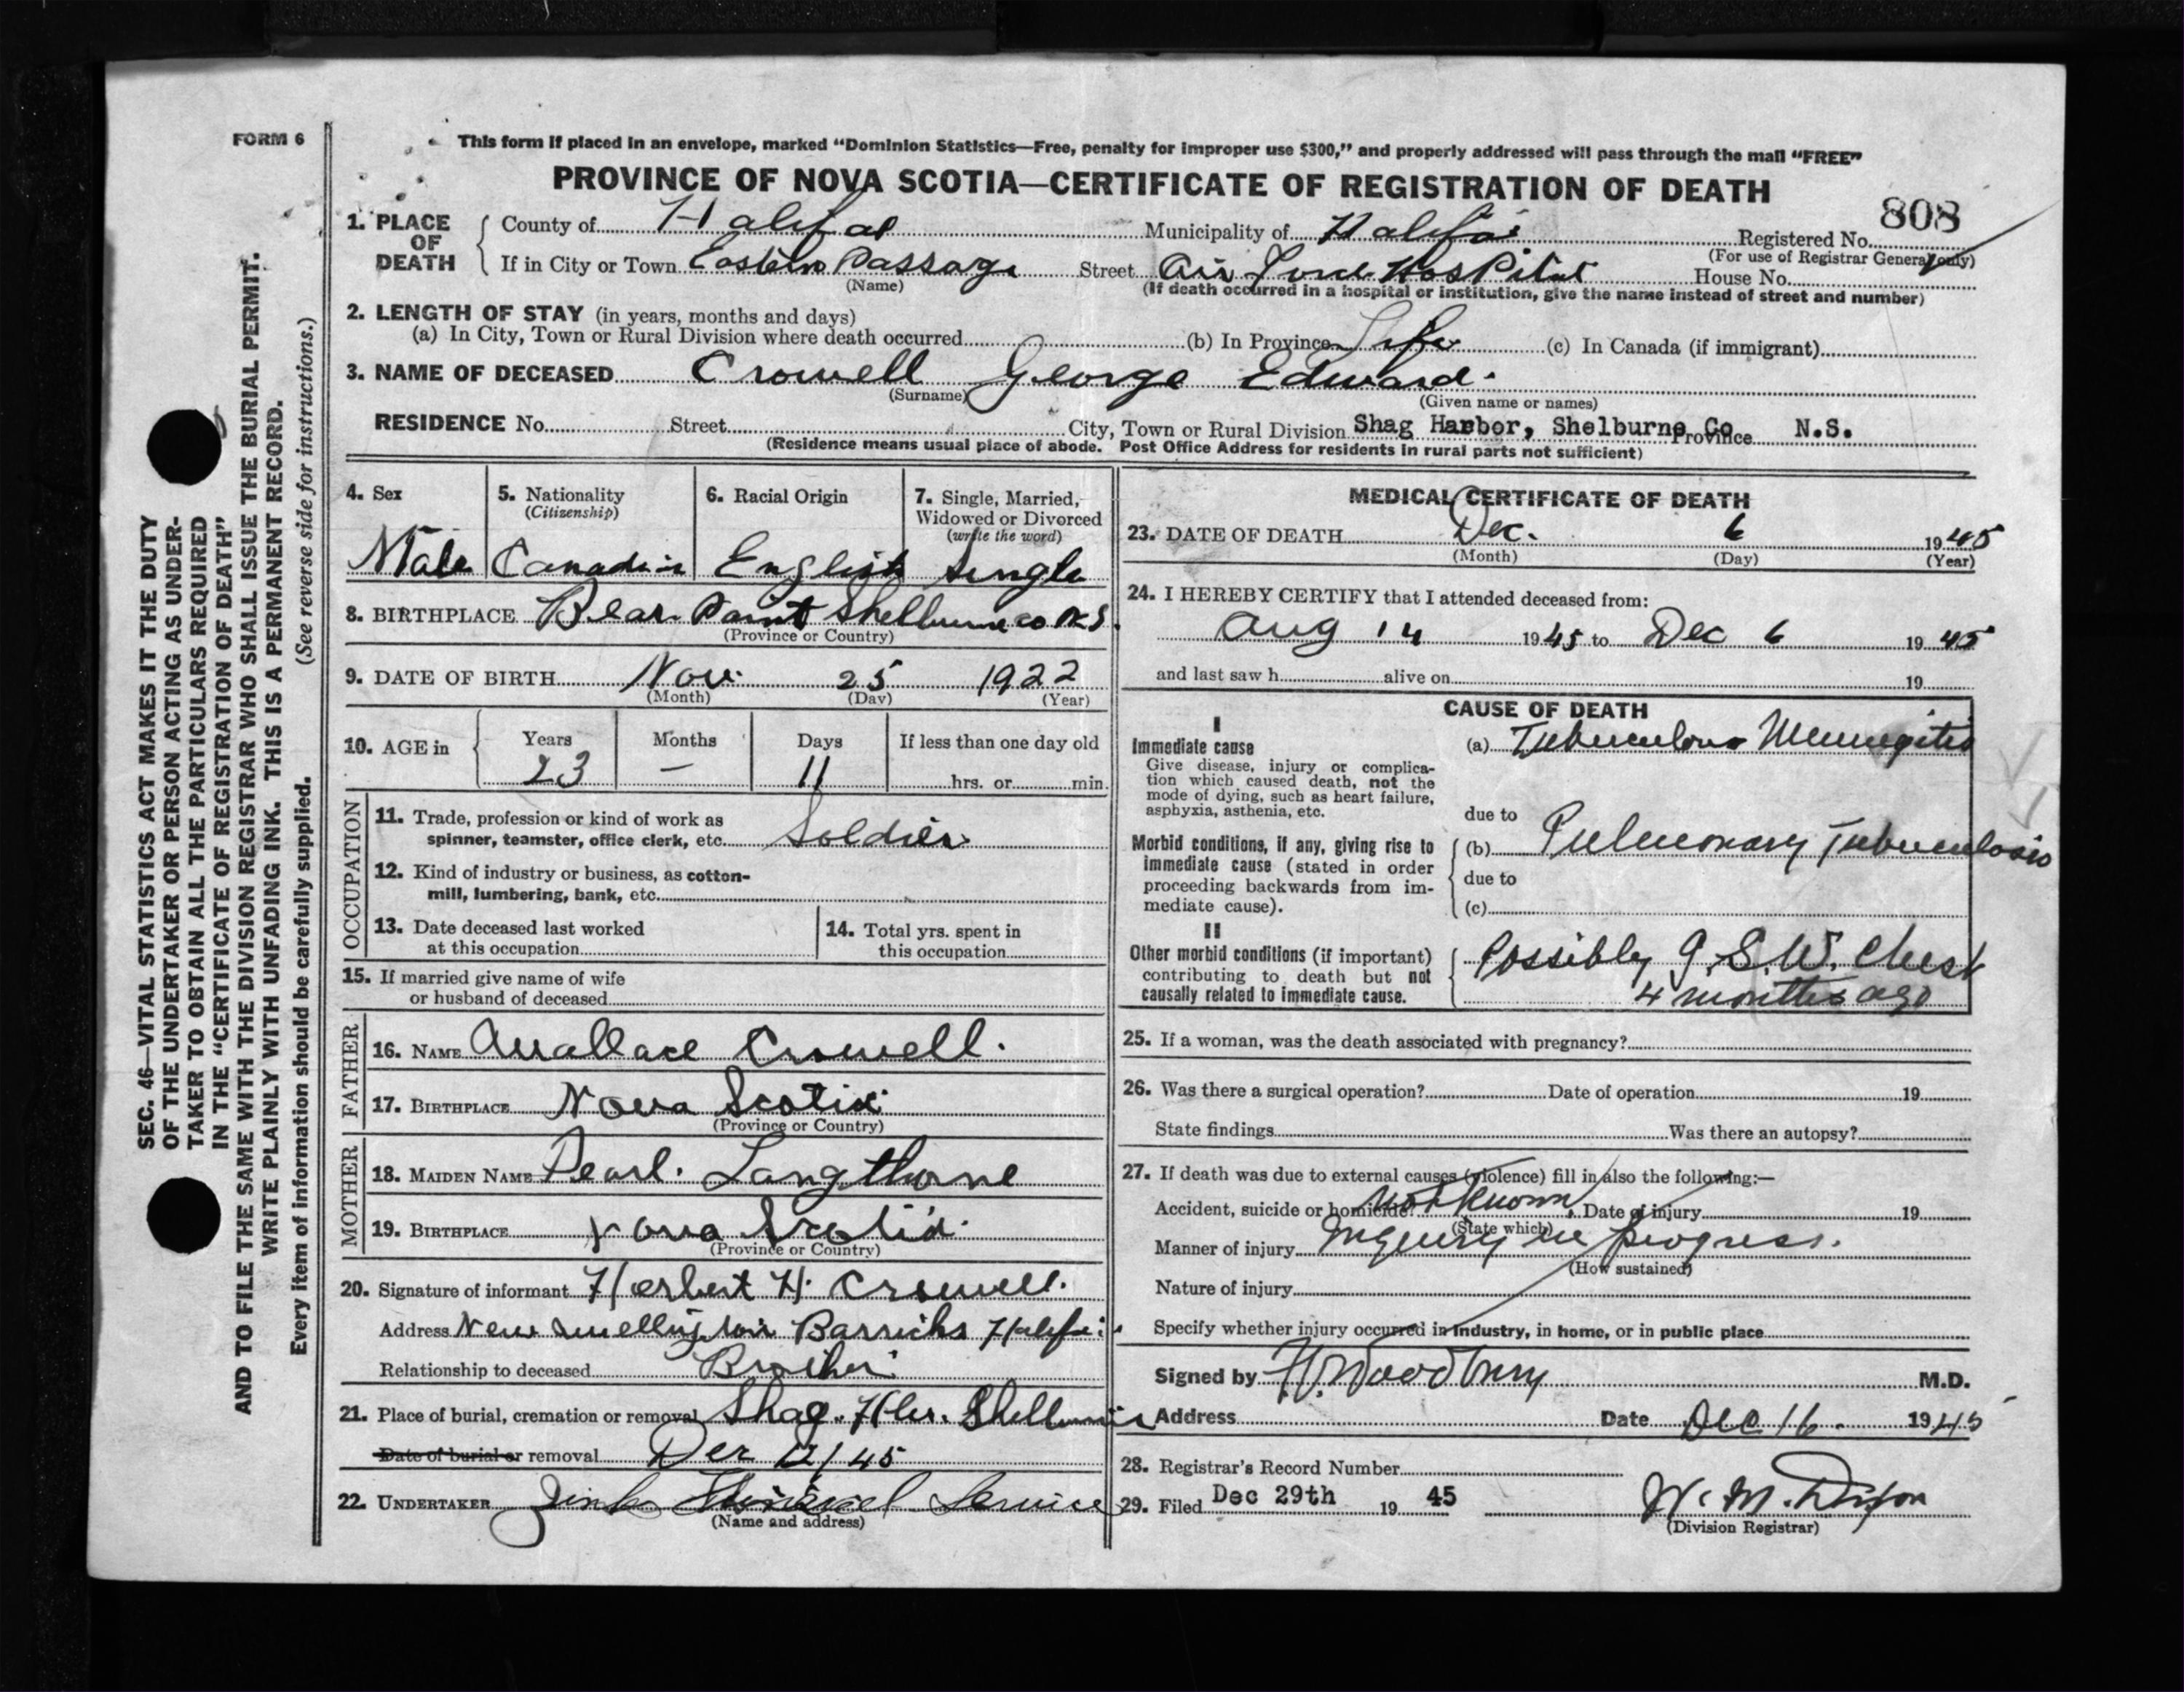 FORM 6
This form if placed in an envelope, marked “Dominion Statistics—Free, penalty for improper use $300,” and properly addressed will pass through the mail “FREE”
PROVINCE OF NOVA SCOTIA—CERTIFICATE OF REGISTRATION OF DEATH
808
1. PLACE OF DEATH
County of Halifax Municipality of Halifax Registered No.
(For use of Registrar General only)
If in City or Town Eastern Passage Street Air Force Hospital House No.
(Name) (If death occurred in a hospital or institution, give the name instead of street and number)
2. LENGTH OF STAY (in years, months and days)
(a) In City, Town or Rural Division where death occurred (b) In Province Life (c) In Canada (if immigrant)
3. NAME OF DECEASED Crowell George Edward.
(Surname) (Given name or names)
RESIDENCE No. Street City, Town or Rural Division Shag Harbor, Shelburne Co Province N.S.
(Residence means usual place of abode. Post Office Address for residents in rural parts not sufficient)
4. Sex
Male
5. Nationality
(Citizenship)
Canadian
6. Racial Origin
English
7. Single, Married,
Widowed or Divorced
(write the word)
Single
8. BIRTHPLACE Bear Point Shelburne co N.S.
(Province or Country)
9. DATE OF BIRTH Nov. 25 1922
(Month) (Day) (Year)
10. AGE in Years Months Days If less than one day old
23 — 11 hrs. or min.
OCCUPATION
11. Trade, profession or kind of work as
spinner, teamster, office clerk, etc. Soldier
12. Kind of industry or business, as cotton-
mill, lumbering, bank, etc.
13. Date deceased last worked
at this occupation
14. Total yrs. spent in
this occupation
15. If married give name of wife
or husband of deceased
FATHER
16. NAME Wallace Crowell.
17. BIRTHPLACE Nova Scotia
(Province or Country)
MOTHER
18. MAIDEN NAME Pearl. Langthorne
19. BIRTHPLACE Nova Scotia.
(Province or Country)
20. Signature of informant Herbert H. Crowell.
Address New Wellington Barricks Halifax
Relationship to deceased Brother
21. Place of burial, cremation or removal Shag. Hbr. Shelburne
Date of burial or removal Dec 12/45
22. UNDERTAKER Funeral Service
(Name and address)
MEDICAL CERTIFICATE OF DEATH
23. DATE OF DEATH Dec. 6 1945
(Month) (Day) (Year)
24. I HEREBY CERTIFY that I attended deceased from:
Aug 14 1945 to Dec 6 1945
and last saw h alive on 19
CAUSE OF DEATH
I
Immediate cause
Give disease, injury or complica-
tion which caused death, not the
mode of dying, such as heart failure,
asphyxia, asthenia, etc.
(a) Tuberculous Meningitis
due to
Morbid conditions, if any, giving rise to
immediate cause (stated in order
proceeding backwards from im-
mediate cause).
(b) Pulmonary Tuberculosis
due to
(c)
II
Other morbid conditions (if important)
contributing to death but not
causally related to immediate cause.
Possibly G.S.W. Chest
4 months ago
25. If a woman, was the death associated with pregnancy?
26. Was there a surgical operation? Date of operation 19
State findings Was there an autopsy?
27. If death was due to external causes (violence) fill in also the following:—
Accident, suicide or homicide? Not Known. Date of injury 19
(State which)
Manner of injury Inquiry in progress.
(How sustained)
Nature of injury
Specify whether injury occurred in industry, in home, or in public place
Signed by H. Woodbury M.D.
Address Date Dec 16. 1945
28. Registrar's Record Number
29. Filed Dec 29th 19 45 W. M. Dixon
(Division Registrar)
SEC. 46—VITAL STATISTICS ACT MAKES IT THE DUTY
OF THE UNDERTAKER OR PERSON ACTING AS UNDER-
TAKER TO OBTAIN ALL THE PARTICULARS REQUIRED
IN THE “CERTIFICATE OF REGISTRATION OF DEATH”
AND TO FILE THE SAME WITH THE DIVISION REGISTRAR WHO SHALL ISSUE THE BURIAL PERMIT.
WRITE PLAINLY WITH UNFADING INK. THIS IS A PERMANENT RECORD.
Every item of information should be carefully supplied. (See reverse side for instructions.)